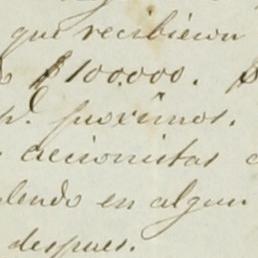 que recibieron
$100.000. $
p. proximos.
accionistas
lendo en algun
despues.